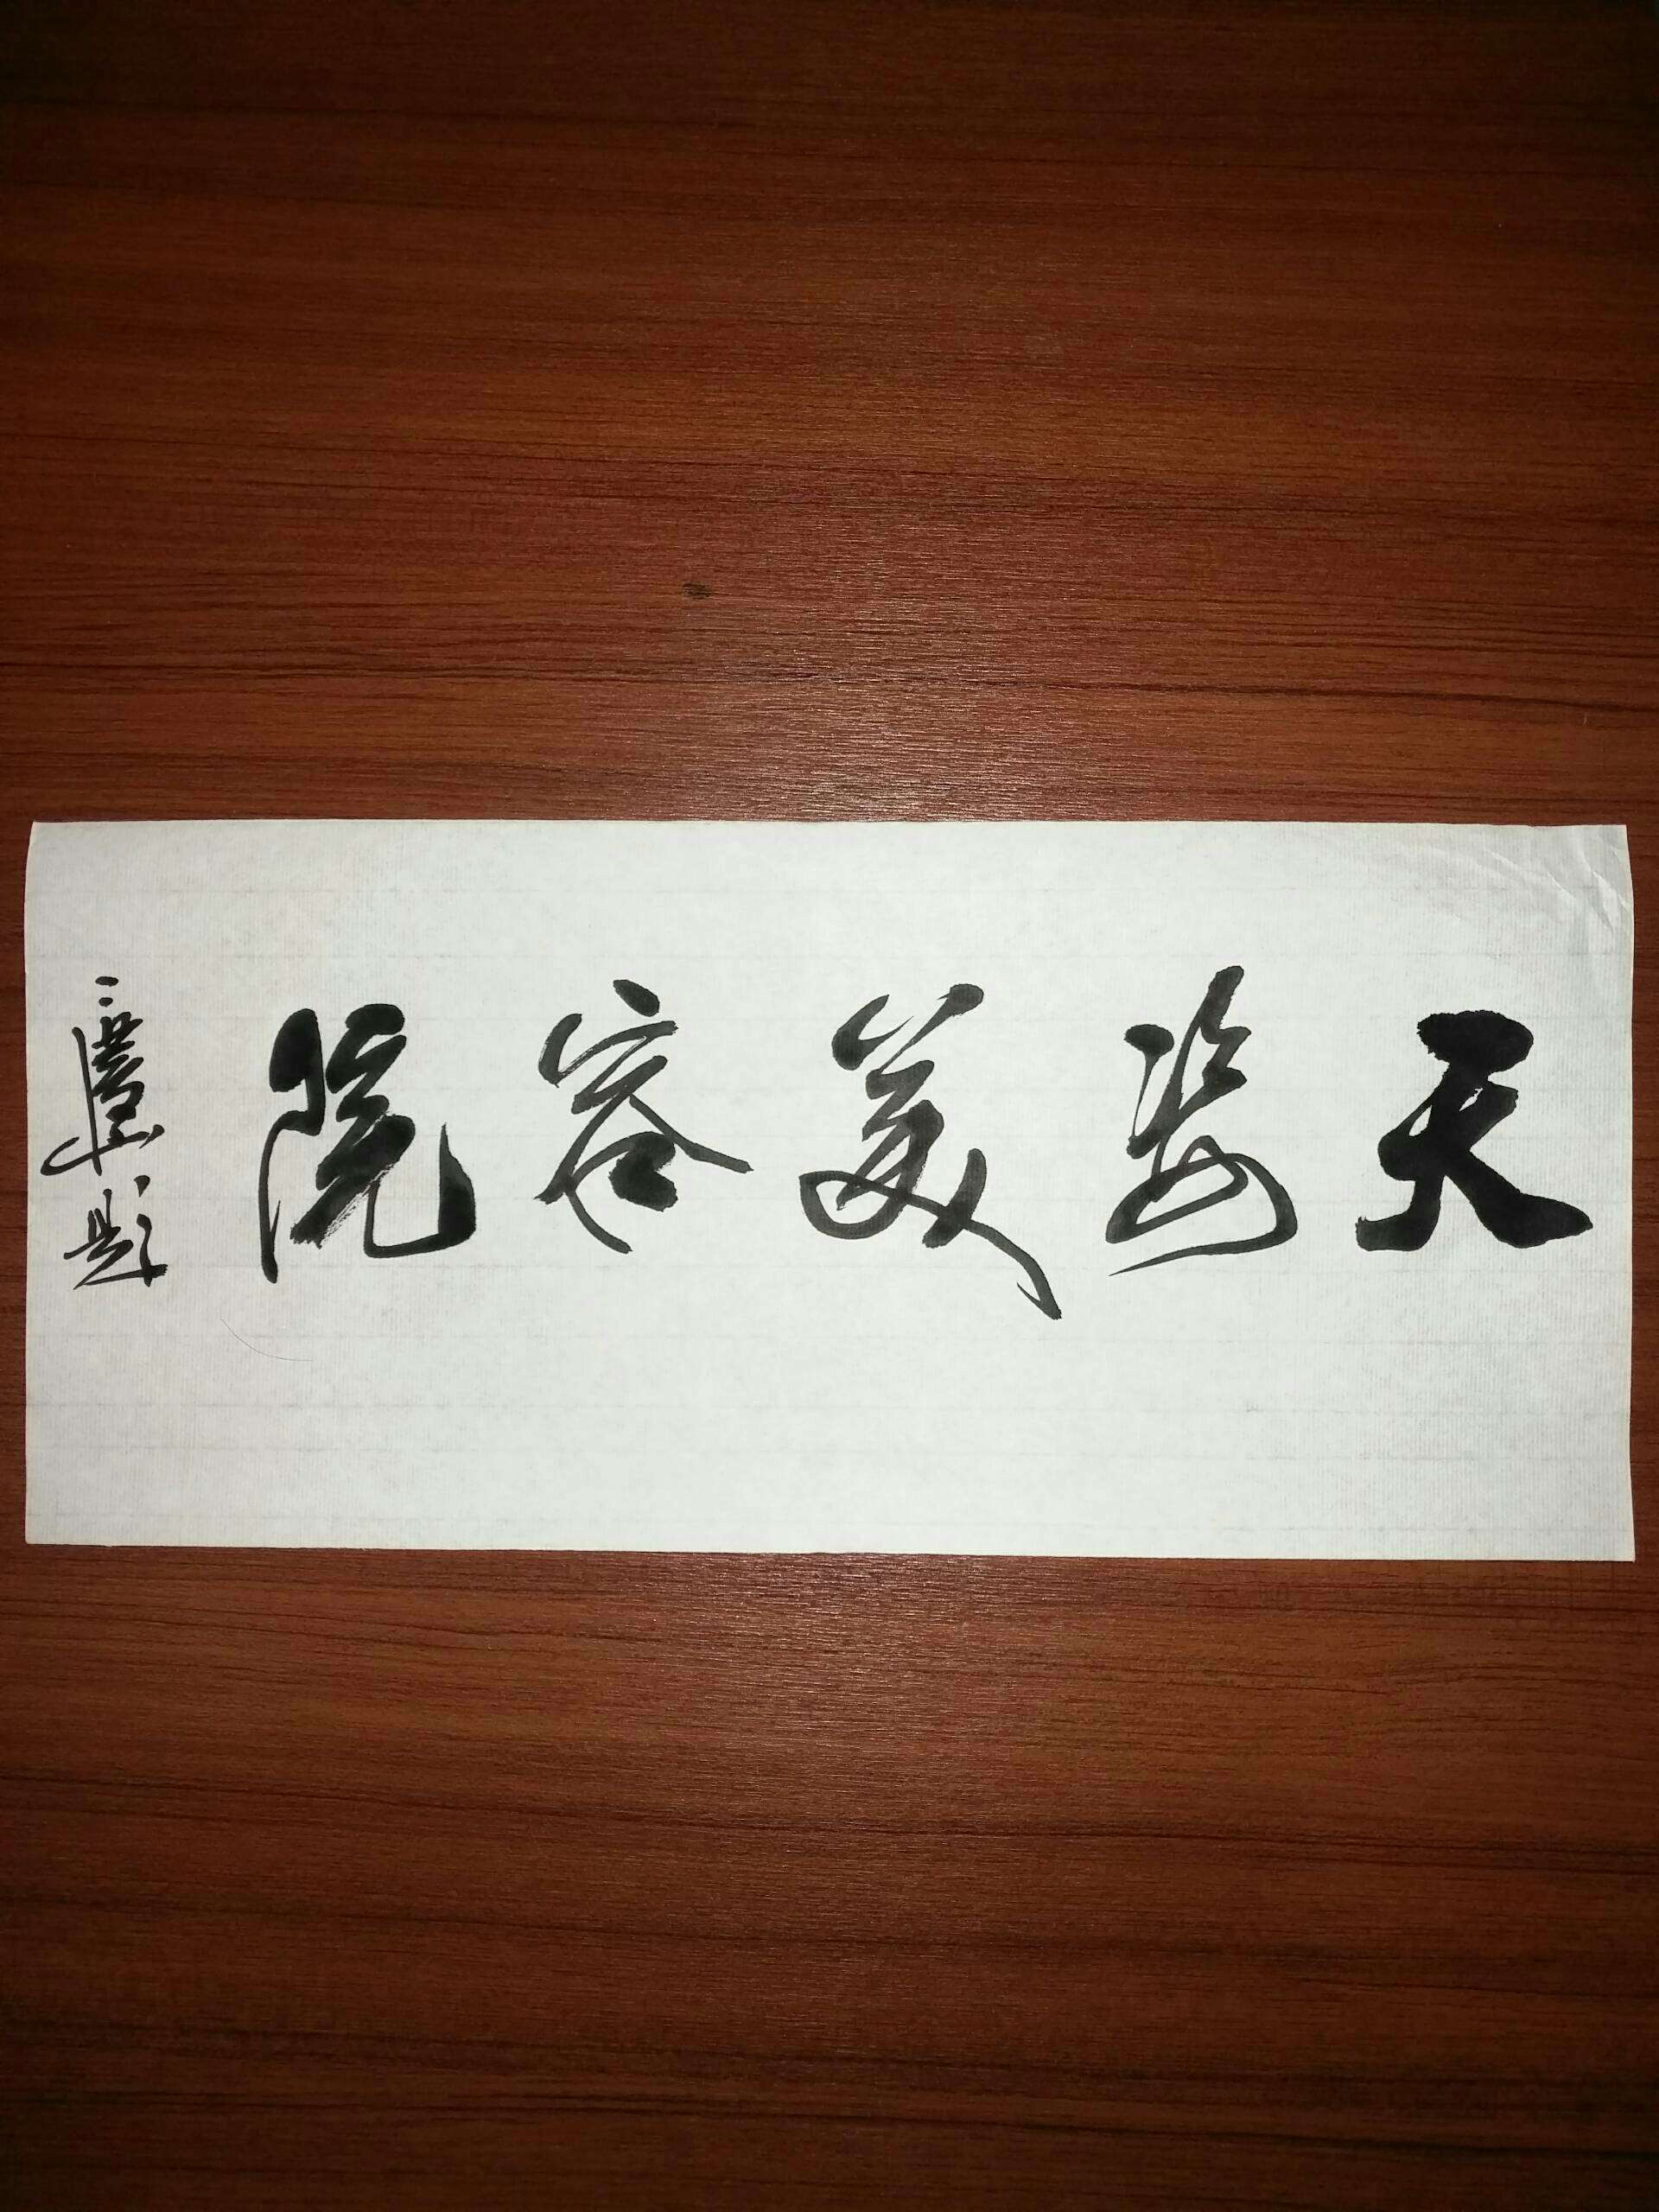 天姿美容院
題